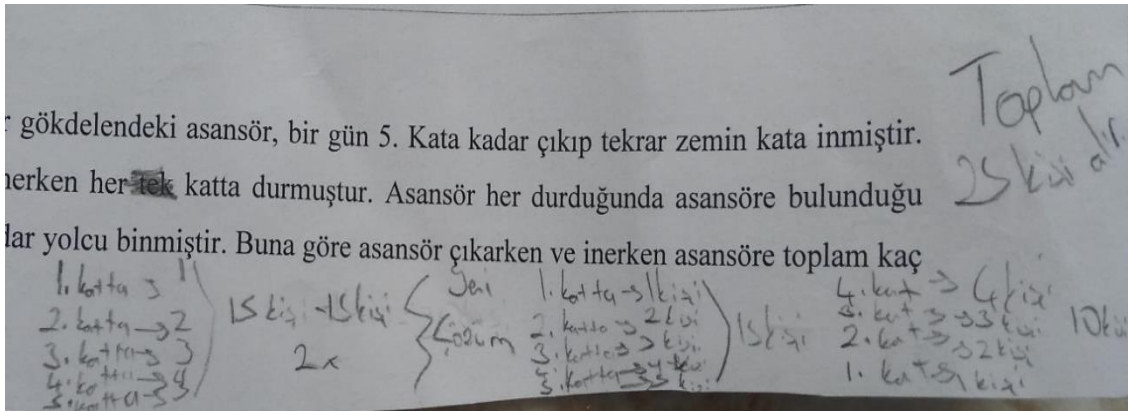 gökdelendeki asansör, bir gün 5. Kata kadar çıkıp tekrar zemin kata inmiştir.
nerken her tek katta durmuştur. Asansör her durduğunda asansöre bulunduğu
dar yolcu binmiştir. Buna göre asansör çıkarken ve inerken asansöre toplam kaç
Toplam
25 kişi alır.
1. katta → 1
2. katta → 2
3. katta → 3
4. katta → 4
5. katta → 5
15 kişi
15 kişi
2x
Yeni
Çözüm
1. katta → 1 kişi
2. katta → 2 kişi
3. katta → 3 kişi
15 kişi
4. kat → 4 kişi
3. kat → 3 kişi
2. kat → 2 kişi
1. kat → 1 kişi
10